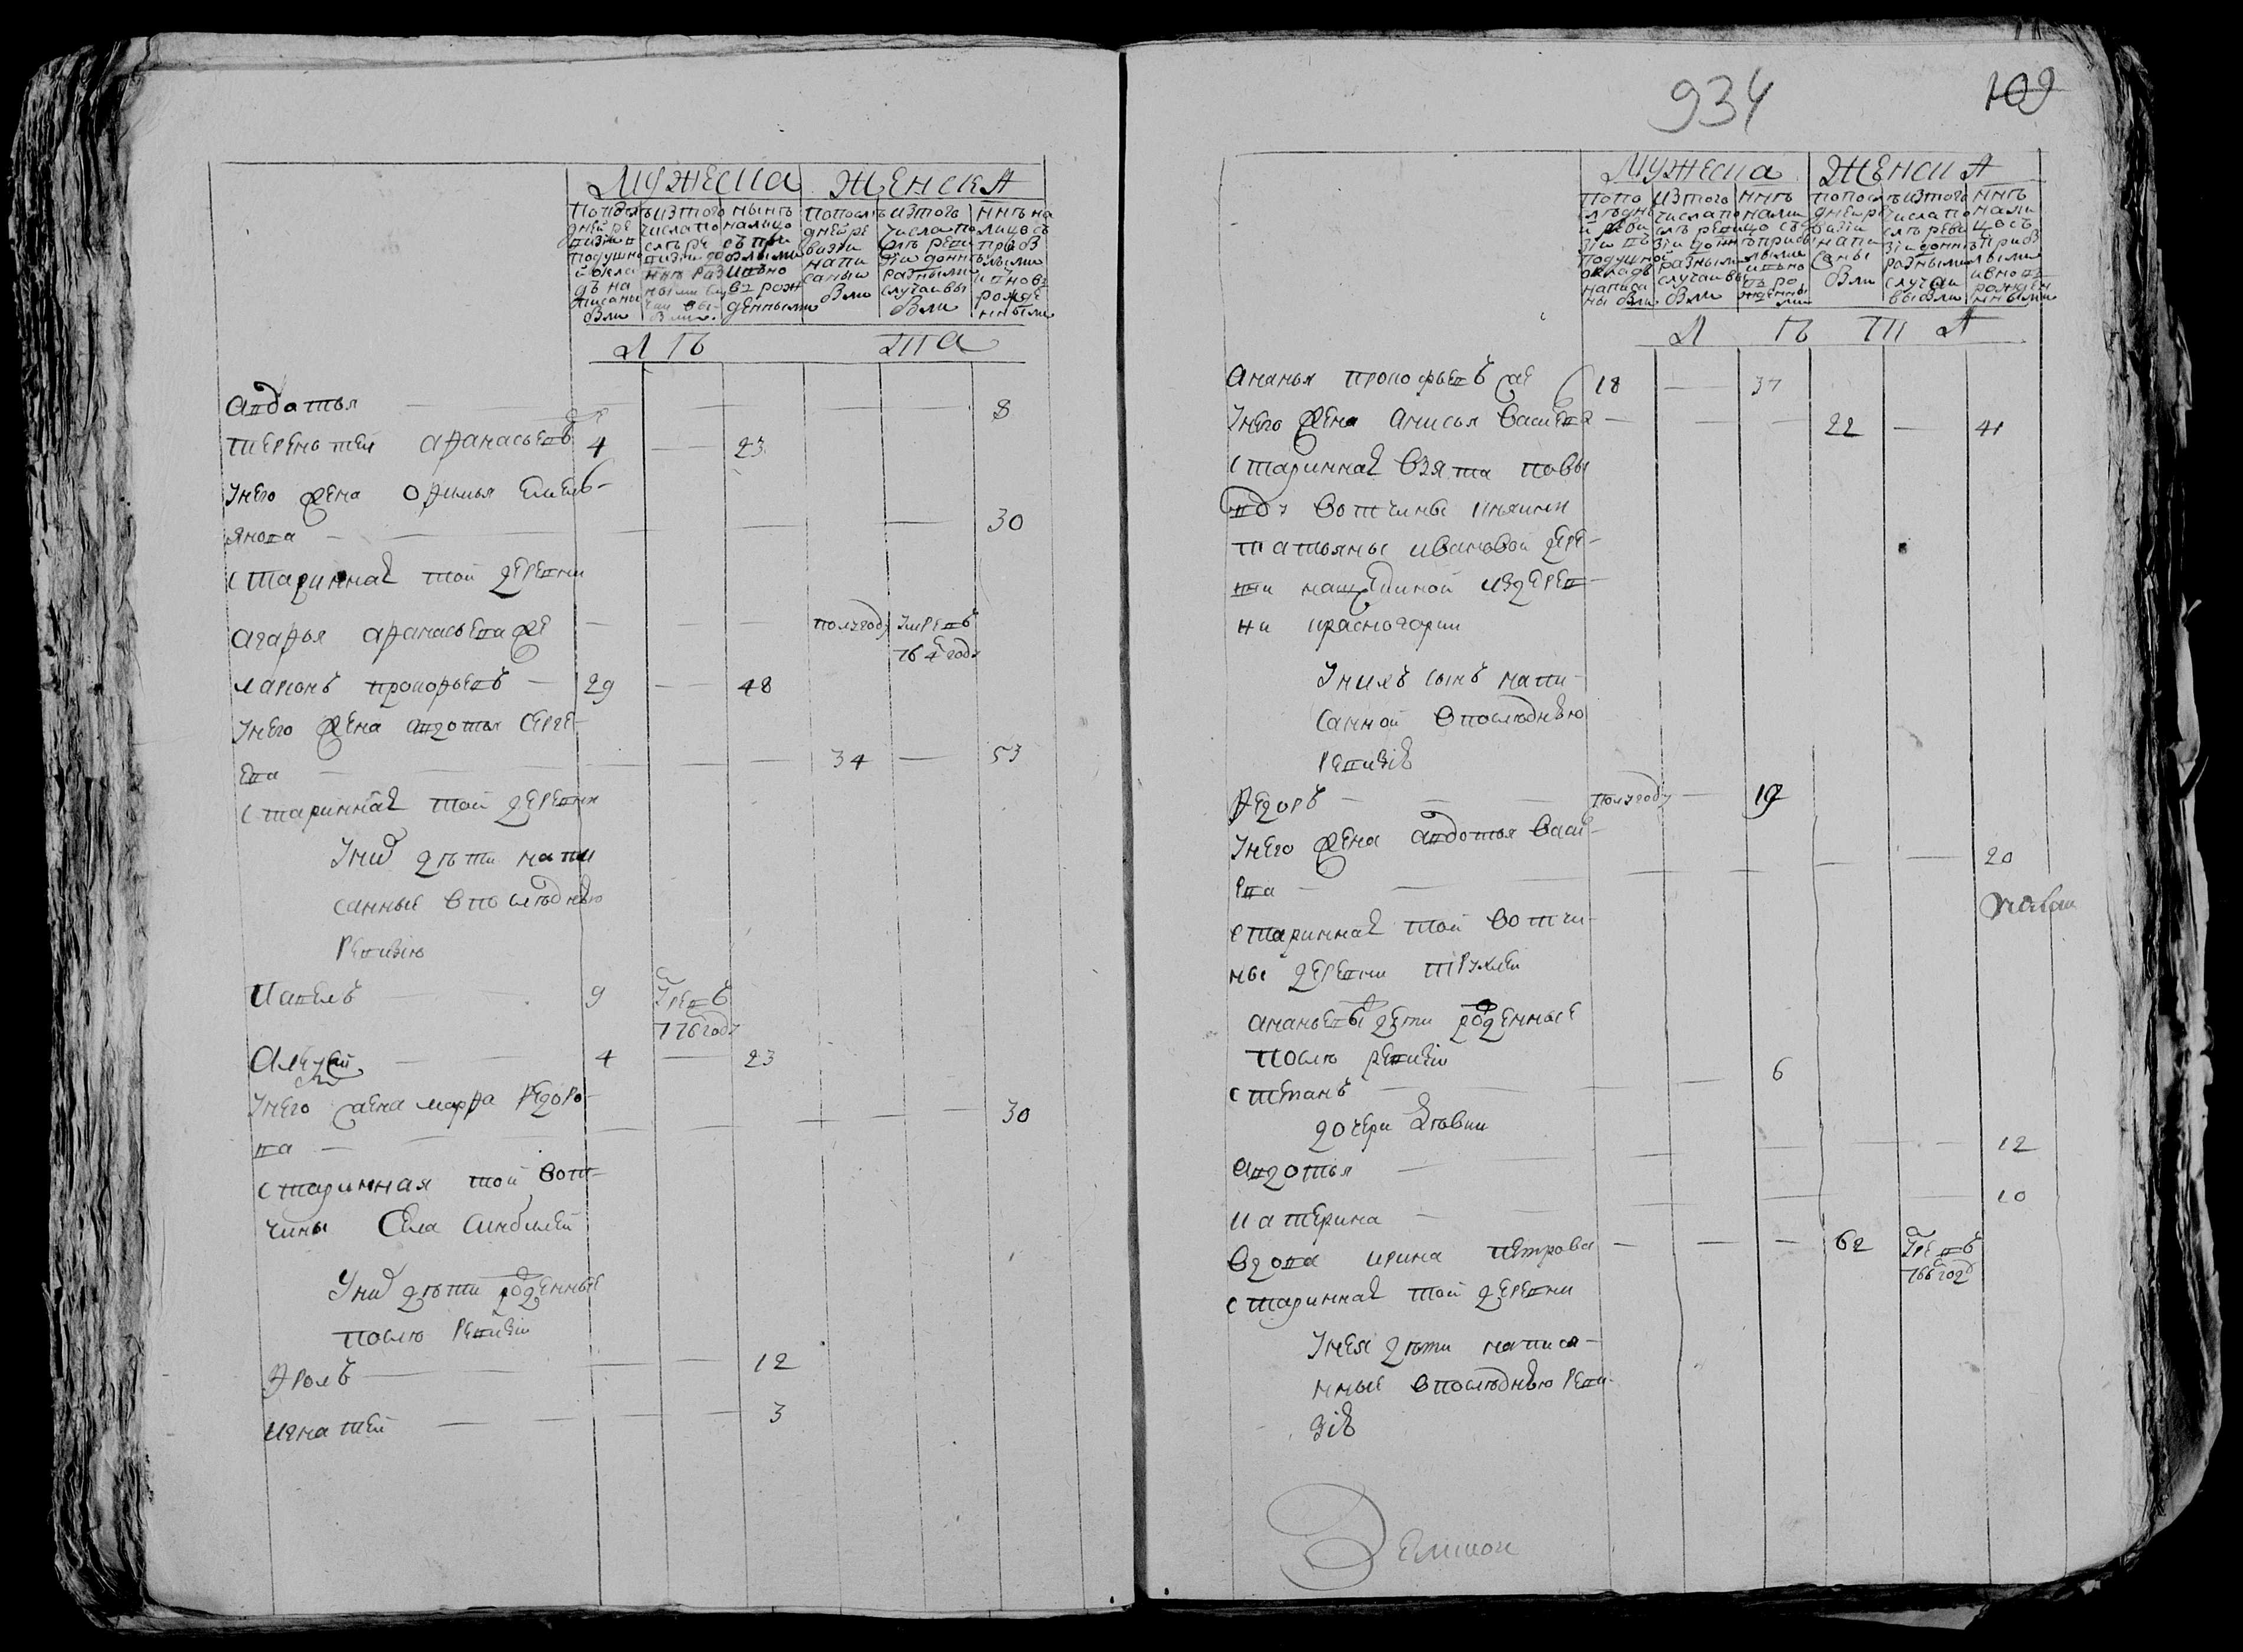 Мужеска Женска
Попослѣ дней ревизии въ подушной окладъ написаны были
Изтого числа послѣ ревизии доннѣ разными случаи выбыли
Нынѣ налицо съ прибылыми и вновь рожденными
Попослѣ дней ревизии написаны были
Изтого числа послѣ ревизіи доннѣ разными случаи выбыли
Ннѣ налицо съ прибылыми и вновь рожденными
Л Ѣ Т А
Авдотья 8
Терентей Афанасьевъ 4 23
Унего жена Офимья Емель-
янова 30
старинная той деревни
Агафья Афанасьева же полугоду умре въ
764 году
Ларионъ Прокофьевъ 29 48
Унего жена Авдотья Серге-
ева 34 53
старинная той деревни
Унихъ дѣти напи
санные впослѣднѣю
ревизию
Павелъ 9 Умре въ
776 году
Алексѣй 4 23
Унего жена Марфа Федоро-
ва 30
старинная той вот-
чины села Синбилей
Унихъ дѣти рожденные
послѣ ревизіи
Фролъ 12
Игнатей 3
934 109
Мужеска Женска
Попослѣдней ревизіи въ подушной окладъ написаны были
Изтого числа по слѣ ревизіи доннѣ разными случаи выбыли
Ннѣ налицо съ прибылыми и вновь рожденны ми
Попослѣ дней ревизіи написаны были
Изтого числа послѣ ревизіи доннѣ разными случаи выбыли
Ннѣ налицо съ прибылыми и вновь рожденными
Л Ѣ Т А
Ананья Прокофьевъ же 18 37
Унего жена Анисья Васильева 22 41
старинная взята по вы
воду вотчины княжны
Татьяны Ивановой дере-
вни
ни Красногорки
Унихъ сынъ напи-
санной впослѣднѣю
ревизіѣ
Федоръ полугоду 19
Унего жена Авдотья Василь-
ева 20
старинная той вотчи-
ны деревни
Ананьевы дѣти рожденные
послѣ ревизіи
Степанъ 6
дочери дѣвки
Авдотья 12
Катерина 10
Вдова Ирина Петрова 62 Умре въ
766 году
старинная той деревни
Унея дѣти написа-
нные впослѣднѣю реви-
зіѣ